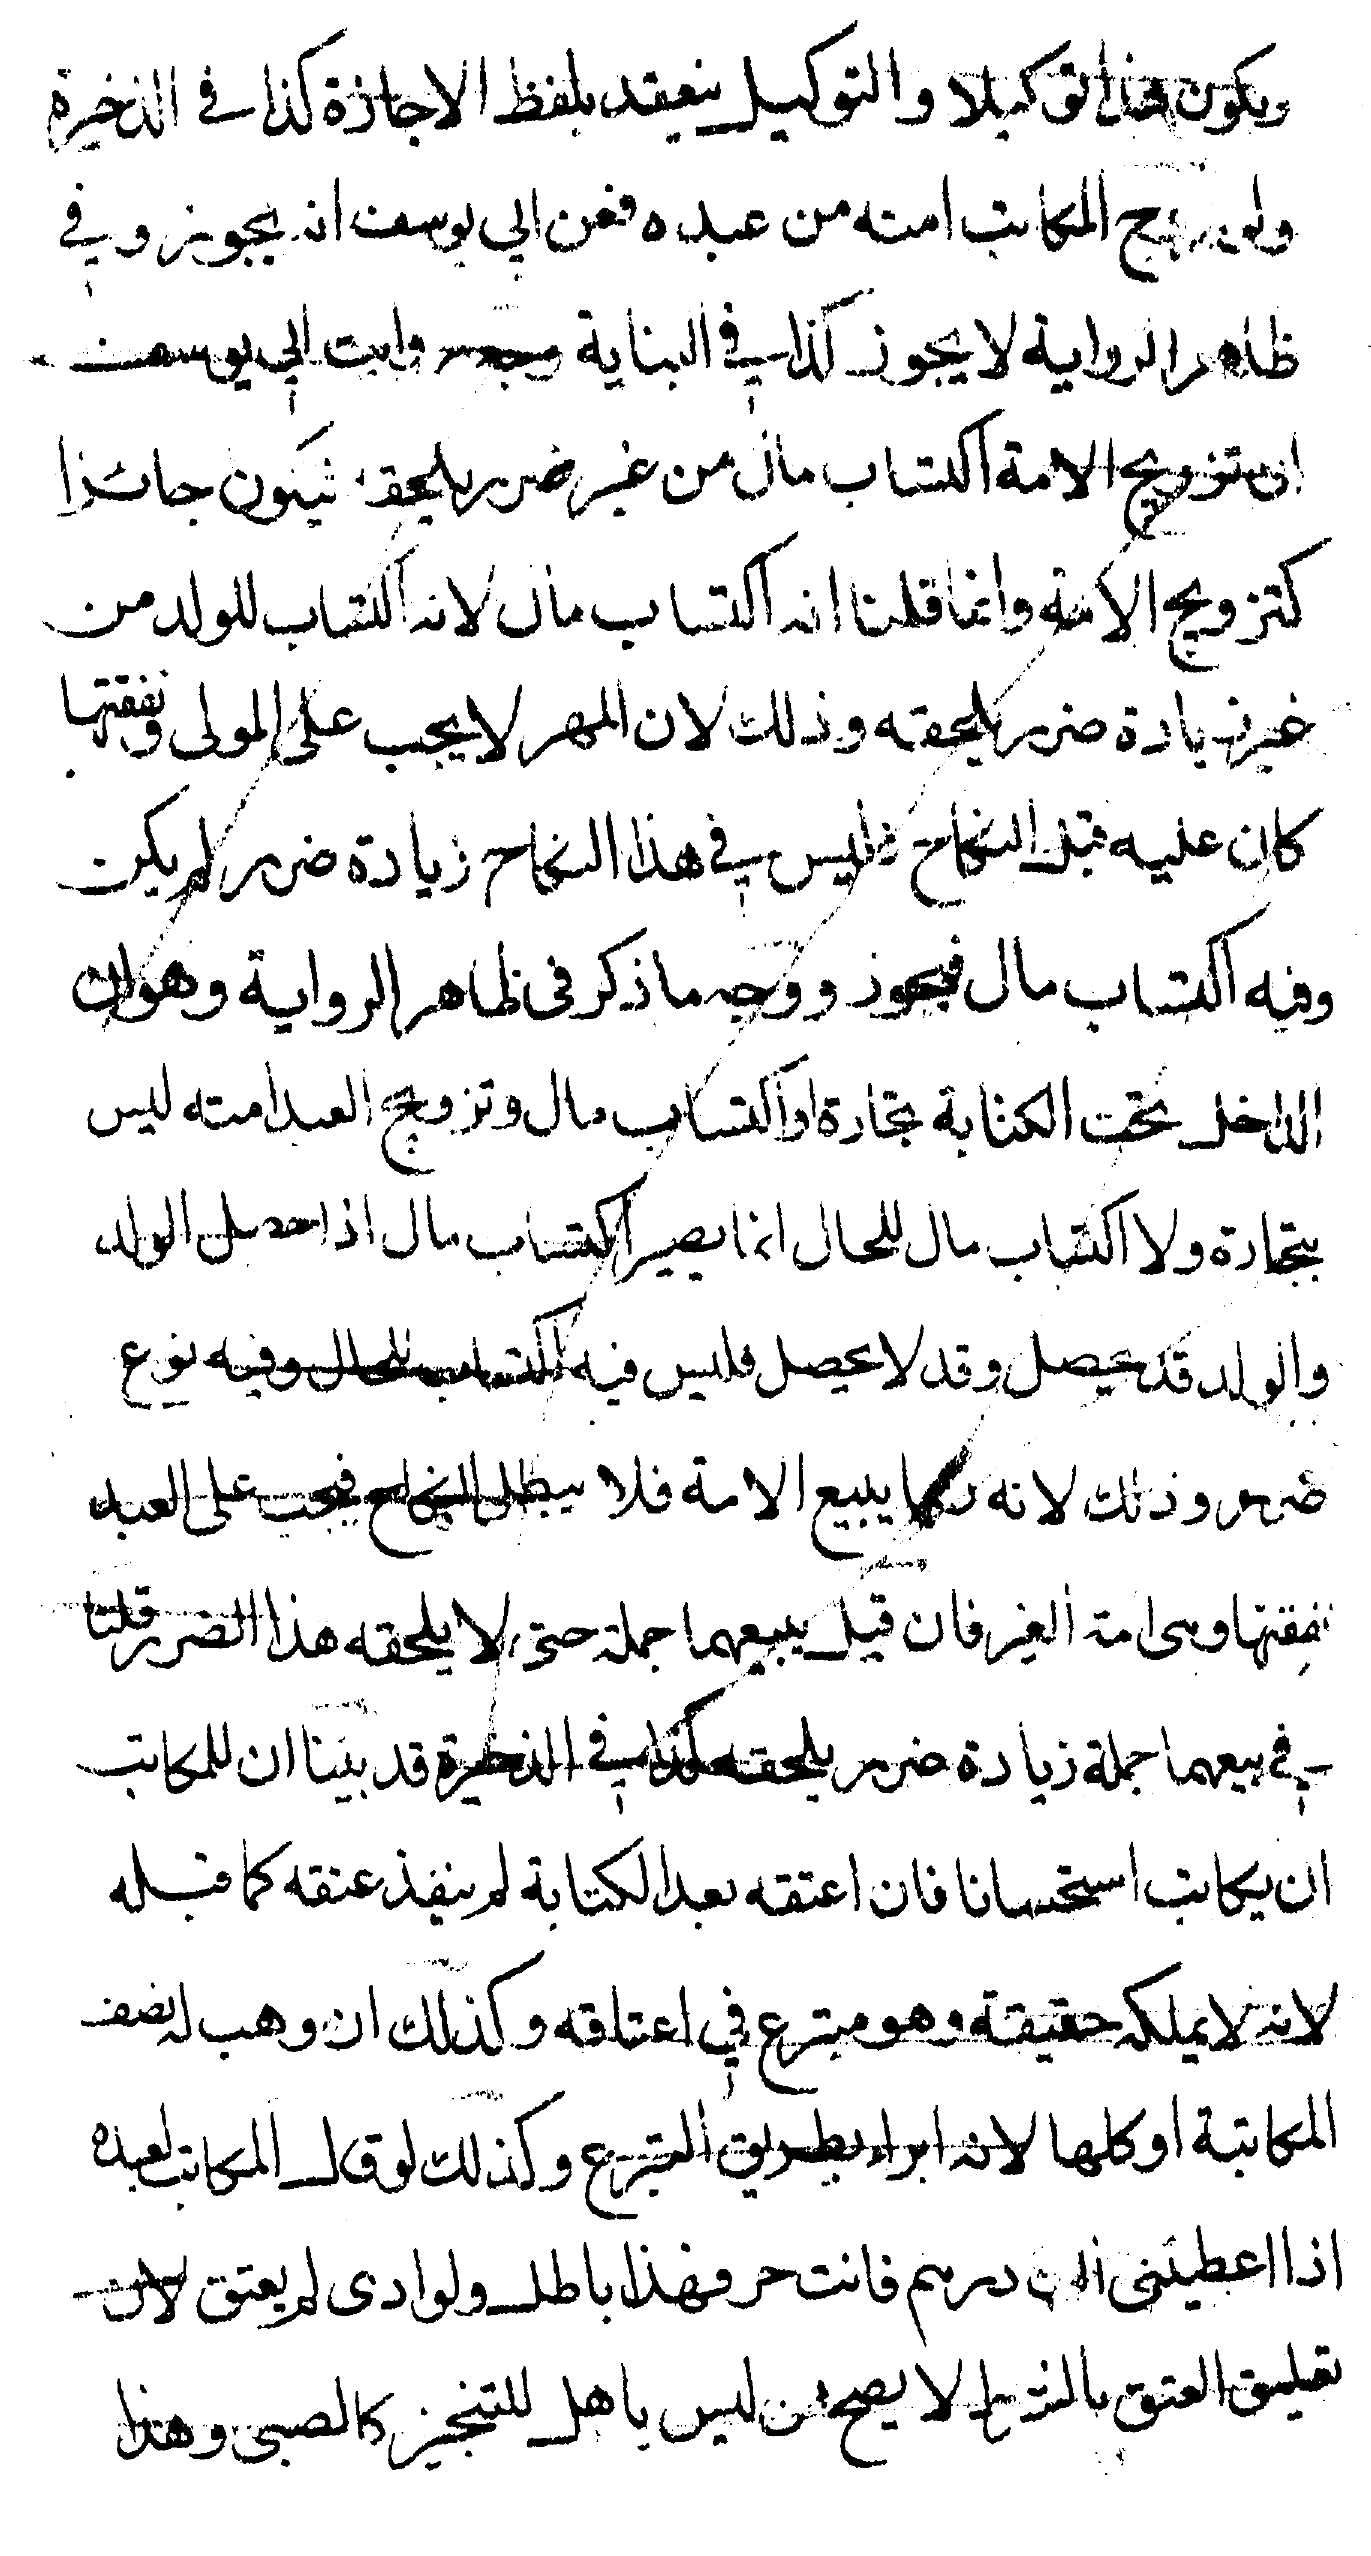 ويكون هذا توكيلا والتوكيل ينعقد بلفظ الاجازة كذا في الذخيرة
ولو زوج المكاتب امته من عبده فعن ابي يوسف انه يجوز وفي
ظاهر الرواية لا يجوز كذا في البناية وجه رواية ابي يوسف
ان تزويج الامة اكتساب مال من غير ضرر يلحقه فيكون جائزا
كتزويج الامة وانما قلنا انه اكتساب مال لانه اكتساب للولد من
غير زيادة ضرر يلحقه وذلك لان المهر لا يجب على المولى ونفقتها
كان عليه قبل النكاح فليس في هذا النكاح زيادة ضرر لم يكن
وفيه اكتساب مال فيجوز ووجه ما ذكر في ظاهر الرواية وهو ان
الداخل تحت الكتابة تجارة او اكتساب مال وتزويج العبد امته ليس
بتجارة ولا اكتساب مال للحال انما يصير اكتساب مال اذا حصل الولد
والولد قد يحصل وقد لا يحصل فليس فيه اكتساب للحال وفيه نوع
ضرر وذلك لانه ربما يبيع الامة فلا يبطل النكاح فيجب على العبد
نفقتها وهى امة الغير فان قيل يبيعهما جملة حتى لا يلحقه هذا الضرر قلنا
في بيعهما جملة زيادة ضرر يلحقه كذا في الذخيرة قد بينا ان للمكاتب
ان يكاتب استحسانا فان اعتقه بعد الكتابة لم ينفذ عتقه كما قبله
لانه لا يملكه حقيقة وهو متبرع في اعتاقه وكذلك ان وهب له نصف
المكاتبة او كلها لانه ابراء بطريق التبرع وكذلك لو قال المكاتب لعبده
اذا اعطيتنى الف درهم فانت حر فهذا باطل ولو ادى لم يعتق لان
تعليق العتق بالشرط لا يصح من ليس باهل للتنجيز كالصبى وهذا